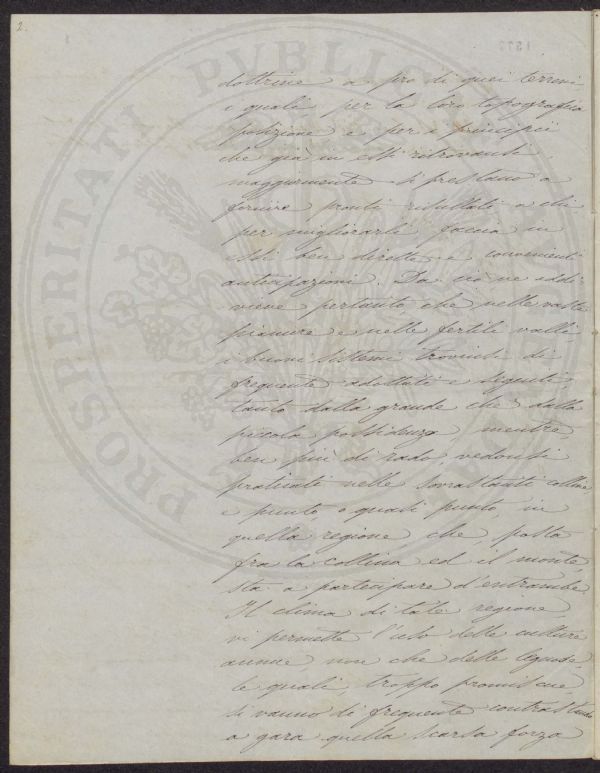 2.
dottrine a pro di quei terreni
i quali per la loro topografica
posizione e per i principii
che già in essi ritrovansi
maggiormente si prestano a
fornire pronti risultati a chi
per migliorarli faccia in
essi ben dirette e convenienti
anticipazioni. Da ciò ne addi-
viene pertanto, che nelle vaste
pianure e nelle fertili valli
i buoni sistemi trovinsi di
frequente adottati e seguiti
tanto dalla grande che dalla
piccola possidenza, mentre,
ben più di rado, vedonsi
praticati nelle sovrastanti colline
e punto, o quasi punto, in
quella regione che, posta
fra la collina ed il monte
sta a partecipare d'entrambe.
Il clima di tale regione
vi permette l'uso delle culture
annue non che delle legnose,
le quali, troppo promiscue,
si vanno di frequente contrastando
a gara quella scarsa forza
PROSPERITATI PVBLICAE